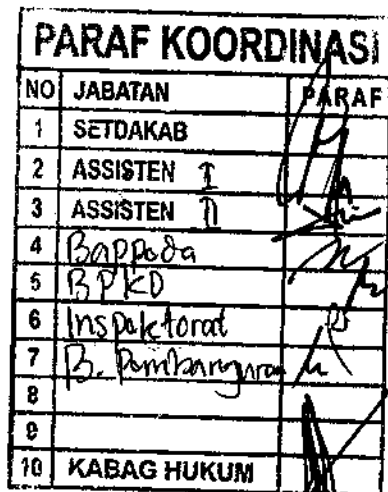 PARAF KOORDINASI
NO JABATAN PARAF
1 SETDAKAB
2 ASSISTEN I
3 ASSISTEN II
4 Bappeda
5 BPKD
6 Inspektorat
7 B. Pembangunan
8
9
10 KABAG HUKUM